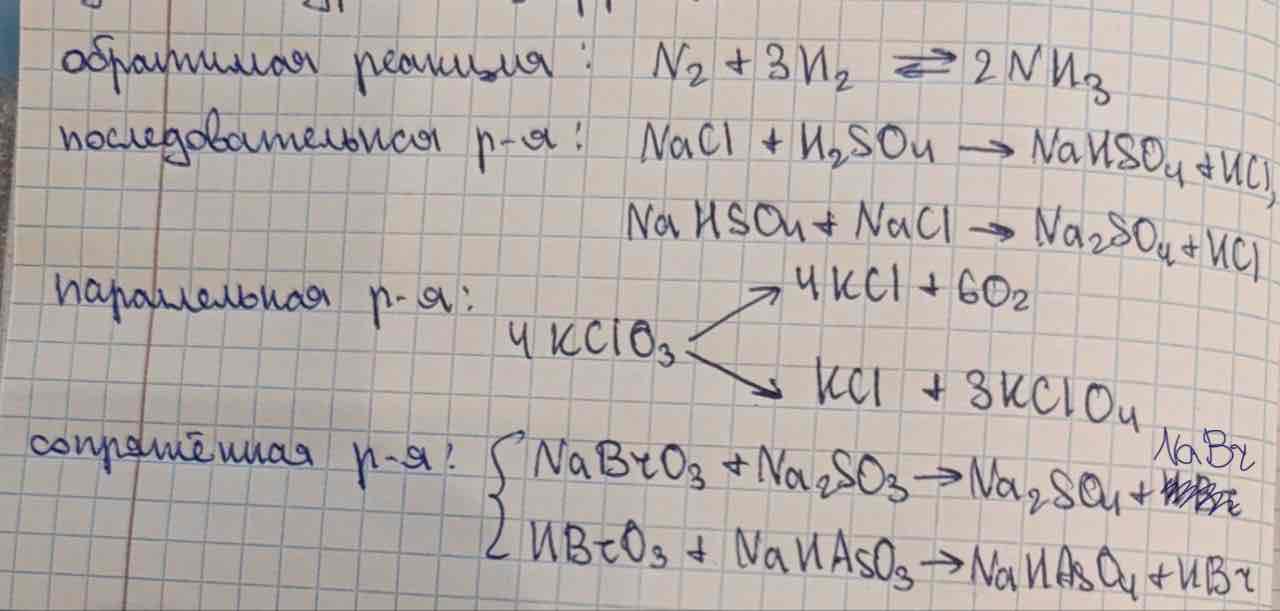 обратимая реакция: N₂ + 3H₂ ⇌ 2NH₃
последовательная р-я: NaCl + H₂SO₄ → NaHSO₄ + HCl,
NaHSO₄ + NaCl → Na₂SO₄ + HCl
паралельная р-я:
4KClO₃ ↗ 4KCl + 6O₂
↘ KCl + 3KClO₄
сопряжённая р-я: { NaBrO₃ + Na₂SO₃ → Na₂SO₄ + NaBr
HBrO₃ + NaHAsO₃ → NaHAsO₄ + HBr